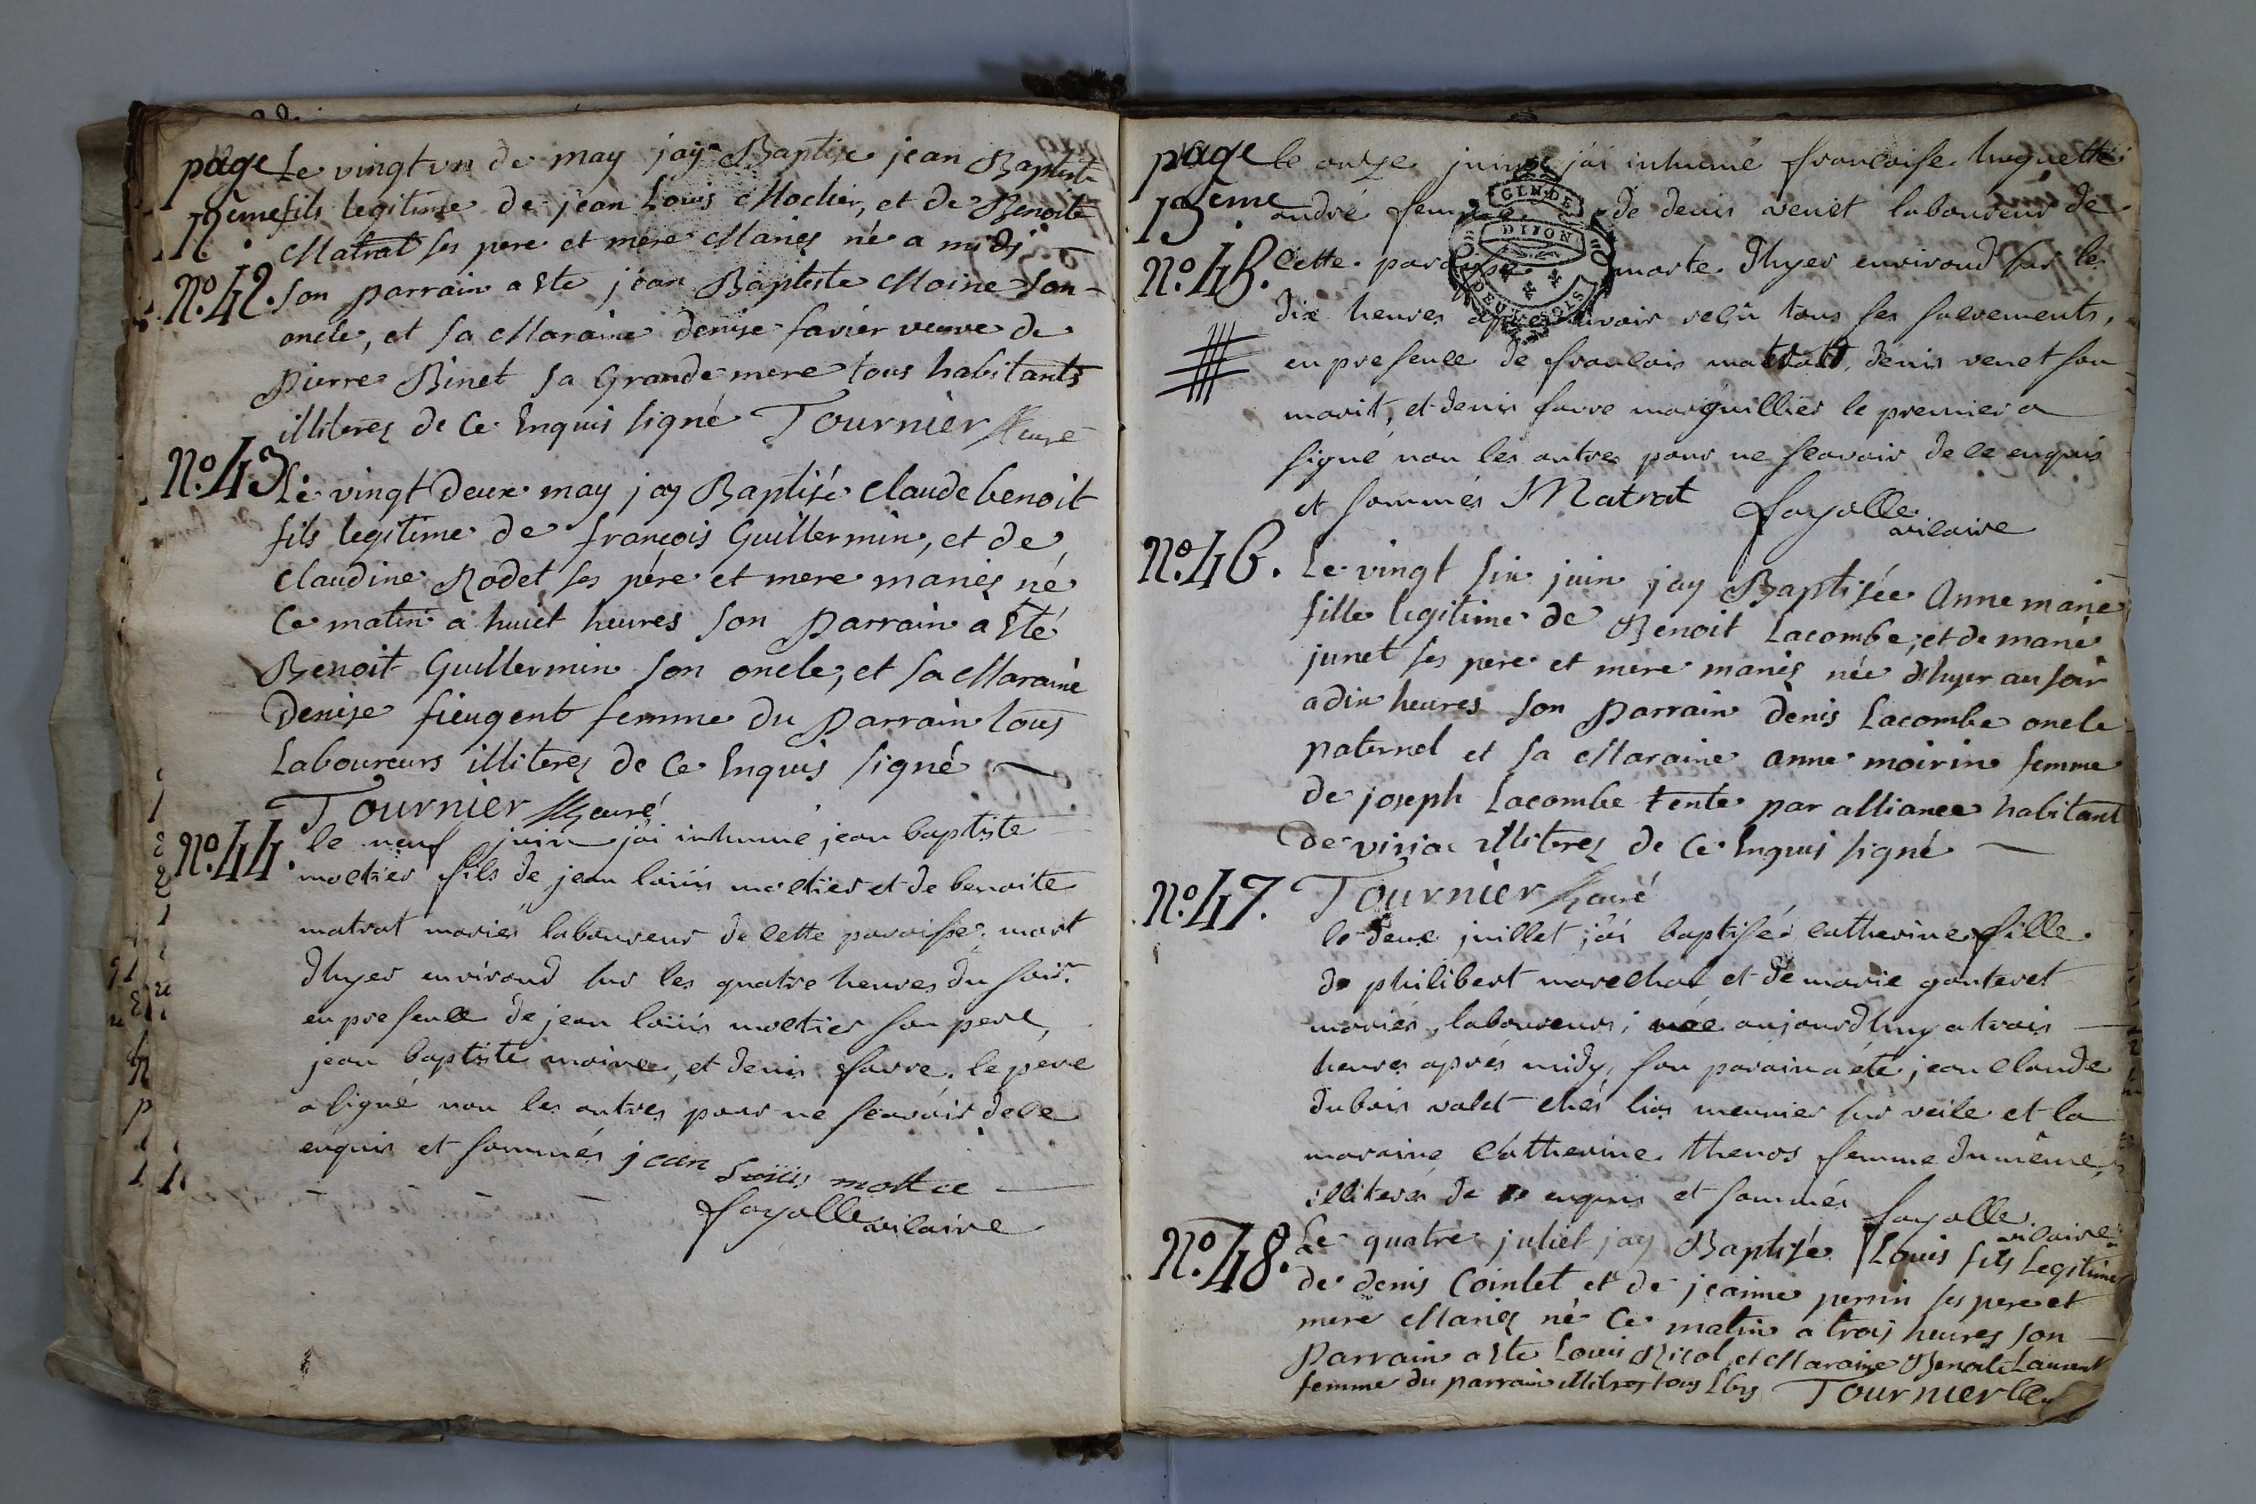 page Le vingt vn de may jay Baptisé jean Baptiste
12eme fils legitime de jean Louis Moctier, et de Benoite
Matrat ses pere et mere Mariés né a midi
No. 42. son parrain a Ete jean Baptiste Moine son
oncle, et sa Maraine denise favier veuve de
pierre Binet sa Grande mere tous habitants
illiterés de Ce Enquis signé Tournier Curé
No. 43 Le vingt Deux may jay Baptisé claude benoit
fils legitime de françois Guillermin, et de
claudine Rodet ses père et mere mariés né
Ce matin a huiet heures son parrain a Eté
Benoit Guillermin son oncle, et sa Maraine
Denise fieugent femme du parrain tous
Laboureurs illiterés de Ce Enquis signé
Tournier Curé
No. 44. le neuf juin jai inhumé jean baptiste
moctier fils de jean loüis moctier et de benoite
matrat mariés laboureur de cette paroisse, mort
d'hyer environd sur les quatre heures du soir.
en presence de jean loüis moctier son pere,
jean baptiste moine, et denis favre. le pere
a signé non les autres pour ne scavoir de ce
enquis et sommés jean Loüis moctie
fayolle vicaire
page le onze juin j'ai inhumé francoise huguette
13eme andré femme de denis venet laboureur de
No. 45. Cette paroisse morte d'hyer environd sur les
dix heures apres avoir reçu tous ses sacrements,
en presence de francois matrat, denis venet son
marit, et denis favre marguillier le premier a
signé non les autres pour ne scavoir de ce enquis
et sommés Matrat fayolle
vicaire
GEN DE
DIJON
DEUX SOLS
No. 46. Le vingt six juin jay Baptisée Anne marie
fille legitime de Benoit Lacombe, et de marie
junet ses pere et mere mariés née d'hyer au soir
a dix heures son parrain denis Lacombe oncle
paternel et sa Maraine anne moirin femme
de joseph Lacombe tente par alliance habitant
de viria illiterés de Ce Enquis signé
Tournier curé
No. 47. le deux juillet j'ai baptisé catherine fille
de philibert marechal et de marie gonteret
mariés, laboureurs, née aujourdhuy a trois
heures après midy, son parain a été jean claude
dubois valet chés lias meunier sur veile et la
maraine Catherine thenos femme du même,
illiterés de ce enquis et sommés fayolle
vicaire
No. 48. Le quatre juliet jay Baptisé Louis fils Legitime
de denis Cointet et de jeanne perrin ses pere et
mere Mariés né Ce matin a trois heures son
Parrain a Ete Louis Nicol et Maraine Benoite Laurent
femme du parrain illitres tous Lbrs Tournier